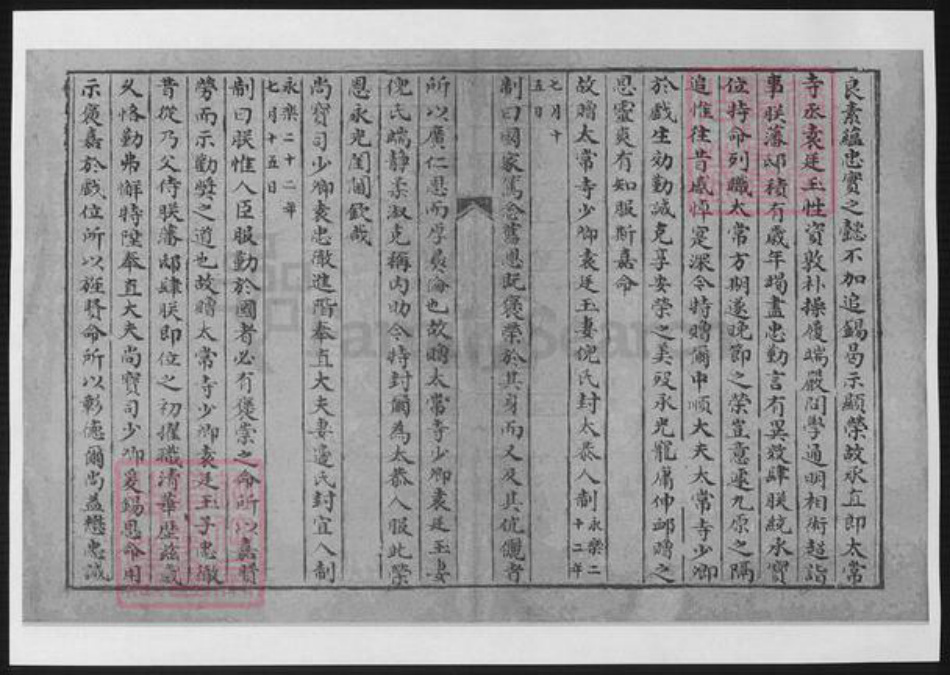 良素蘊忠實之懿不加追錫曷示顯榮故承直郎太常
寺丞袁廷玉性資敦朴操履端嚴問學通明相術超詣
事朕藩邸積有歲年竭盡忠勤言有異效肆朕統承寶
位特命列職太常方期遂晚節之榮豈意遽九原之隔
追惟往昔感悼寔深今特贈爾中順大夫太常寺少卿
於戲生効勤誠克享安榮之美歿承光寵庸伸卹贈之
恩靈爽有知服斯嘉命
故贈太常寺少卿袁廷玉妻倪氏封太恭人制永樂二十二年
七月十五日
制曰國家篤念舊恩既褒榮於其身而又及其伉儷者
所以廣仁恩而厚彛倫也故贈太常寺少卿袁廷玉妻
倪氏端靜柔淑克稱內助今特封爾為太恭人服此榮
恩永光閨閫欽哉
尚寶司少卿袁忠徹進階奉直大夫妻邊氏封宜人制
永樂二十二年七月十五日
制曰朕惟人臣服勤於國者必有褒崇之命所以嘉賢
勞而示勸獎之道也故贈太常寺少卿袁廷玉子忠徹
昔從乃父侍朕藩邸肆朕即位之初擢職清華歷茲歲
久恪勤弗懈特陞奉直大夫尚寶司少卿爰錫恩命用
示褒嘉於戲位所以旌賢命所以彰德爾尚益懋忠誠